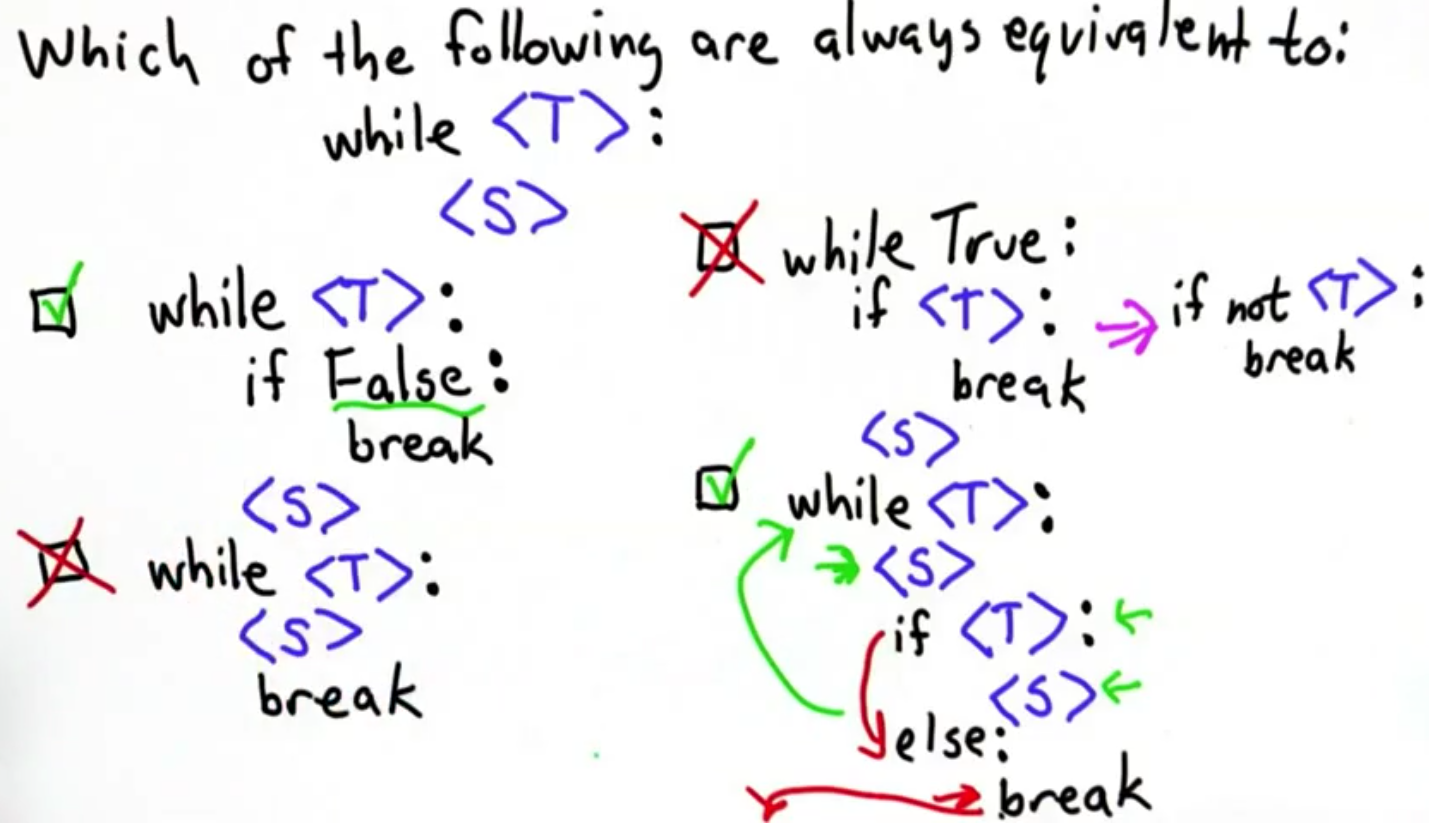 Which of the following are always equivalent to:
while <T>:
<S>
while <T>:
if False:
break
<S>
while <T>:
<S>
break
while True:
if <T>:
break
<S>
if not <T>:
break
while <T>:
<S>
if <T>:
<S>
else:
break